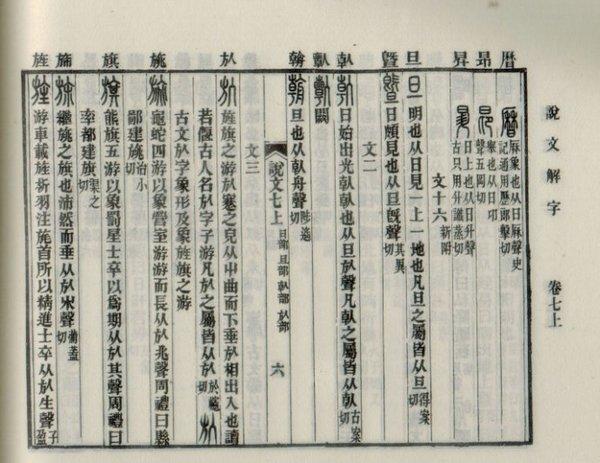 說文解字
卷七上
曆
厤象也从日厤聲史記通用歷郎擊切
昂
舉也从日卬聲五岡切
昇
日上也从日升聲古只用升識蒸切
文十六新附
旦
明也从日見一上一地也凡旦之屬皆从旦得案切
暨
日頗見也从旦旣聲其異切
文二
倝
日始出光倝倝也从旦㫃聲凡倝之屬皆从倝古案切
闕
旦也从倝舟聲陟遙切
說文七上
日部 旦部 倝部 㫃部
六
文三
㫃
旌旗之游㫃蹇之皃从屮曲而下垂㫃相出入也讀
若偃古人名㫃字子游凡㫃之屬皆从㫃於幰切
古文㫃字象形及象旌旗之游
旐
龜蛇四游以象營室游游而長从㫃兆聲周禮曰縣
鄙建旐治小切
旗
熊旗五游以象罰星士卒以爲期从㫃其聲周禮曰
率都建旗渠之切
旆
繼旐之旗也沛然而垂从㫃宋聲蒲蓋切
旌
游車載旌析羽注旄首所以精進士卒从㫃生聲子盈